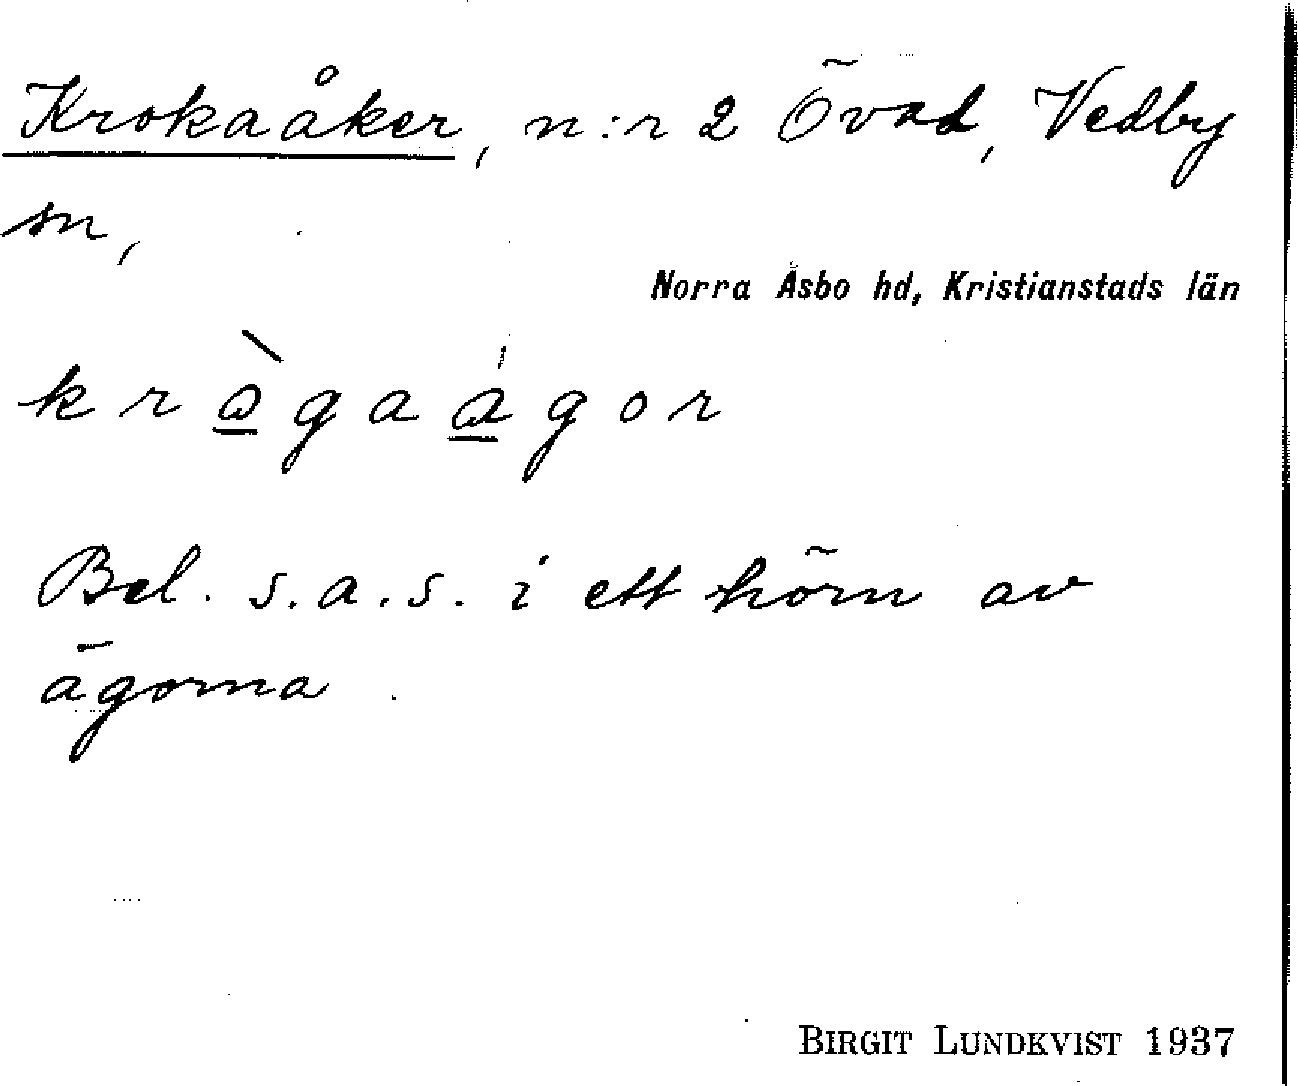 Krokaåker, n:r 2 Övad, Vedby
sn,
Norra Åsbo hd, Kristianstads län
kràgaágor
Bel. s.a.s. i ett hörn av
ägorna
BIRGIT LUNDKVIST 1937